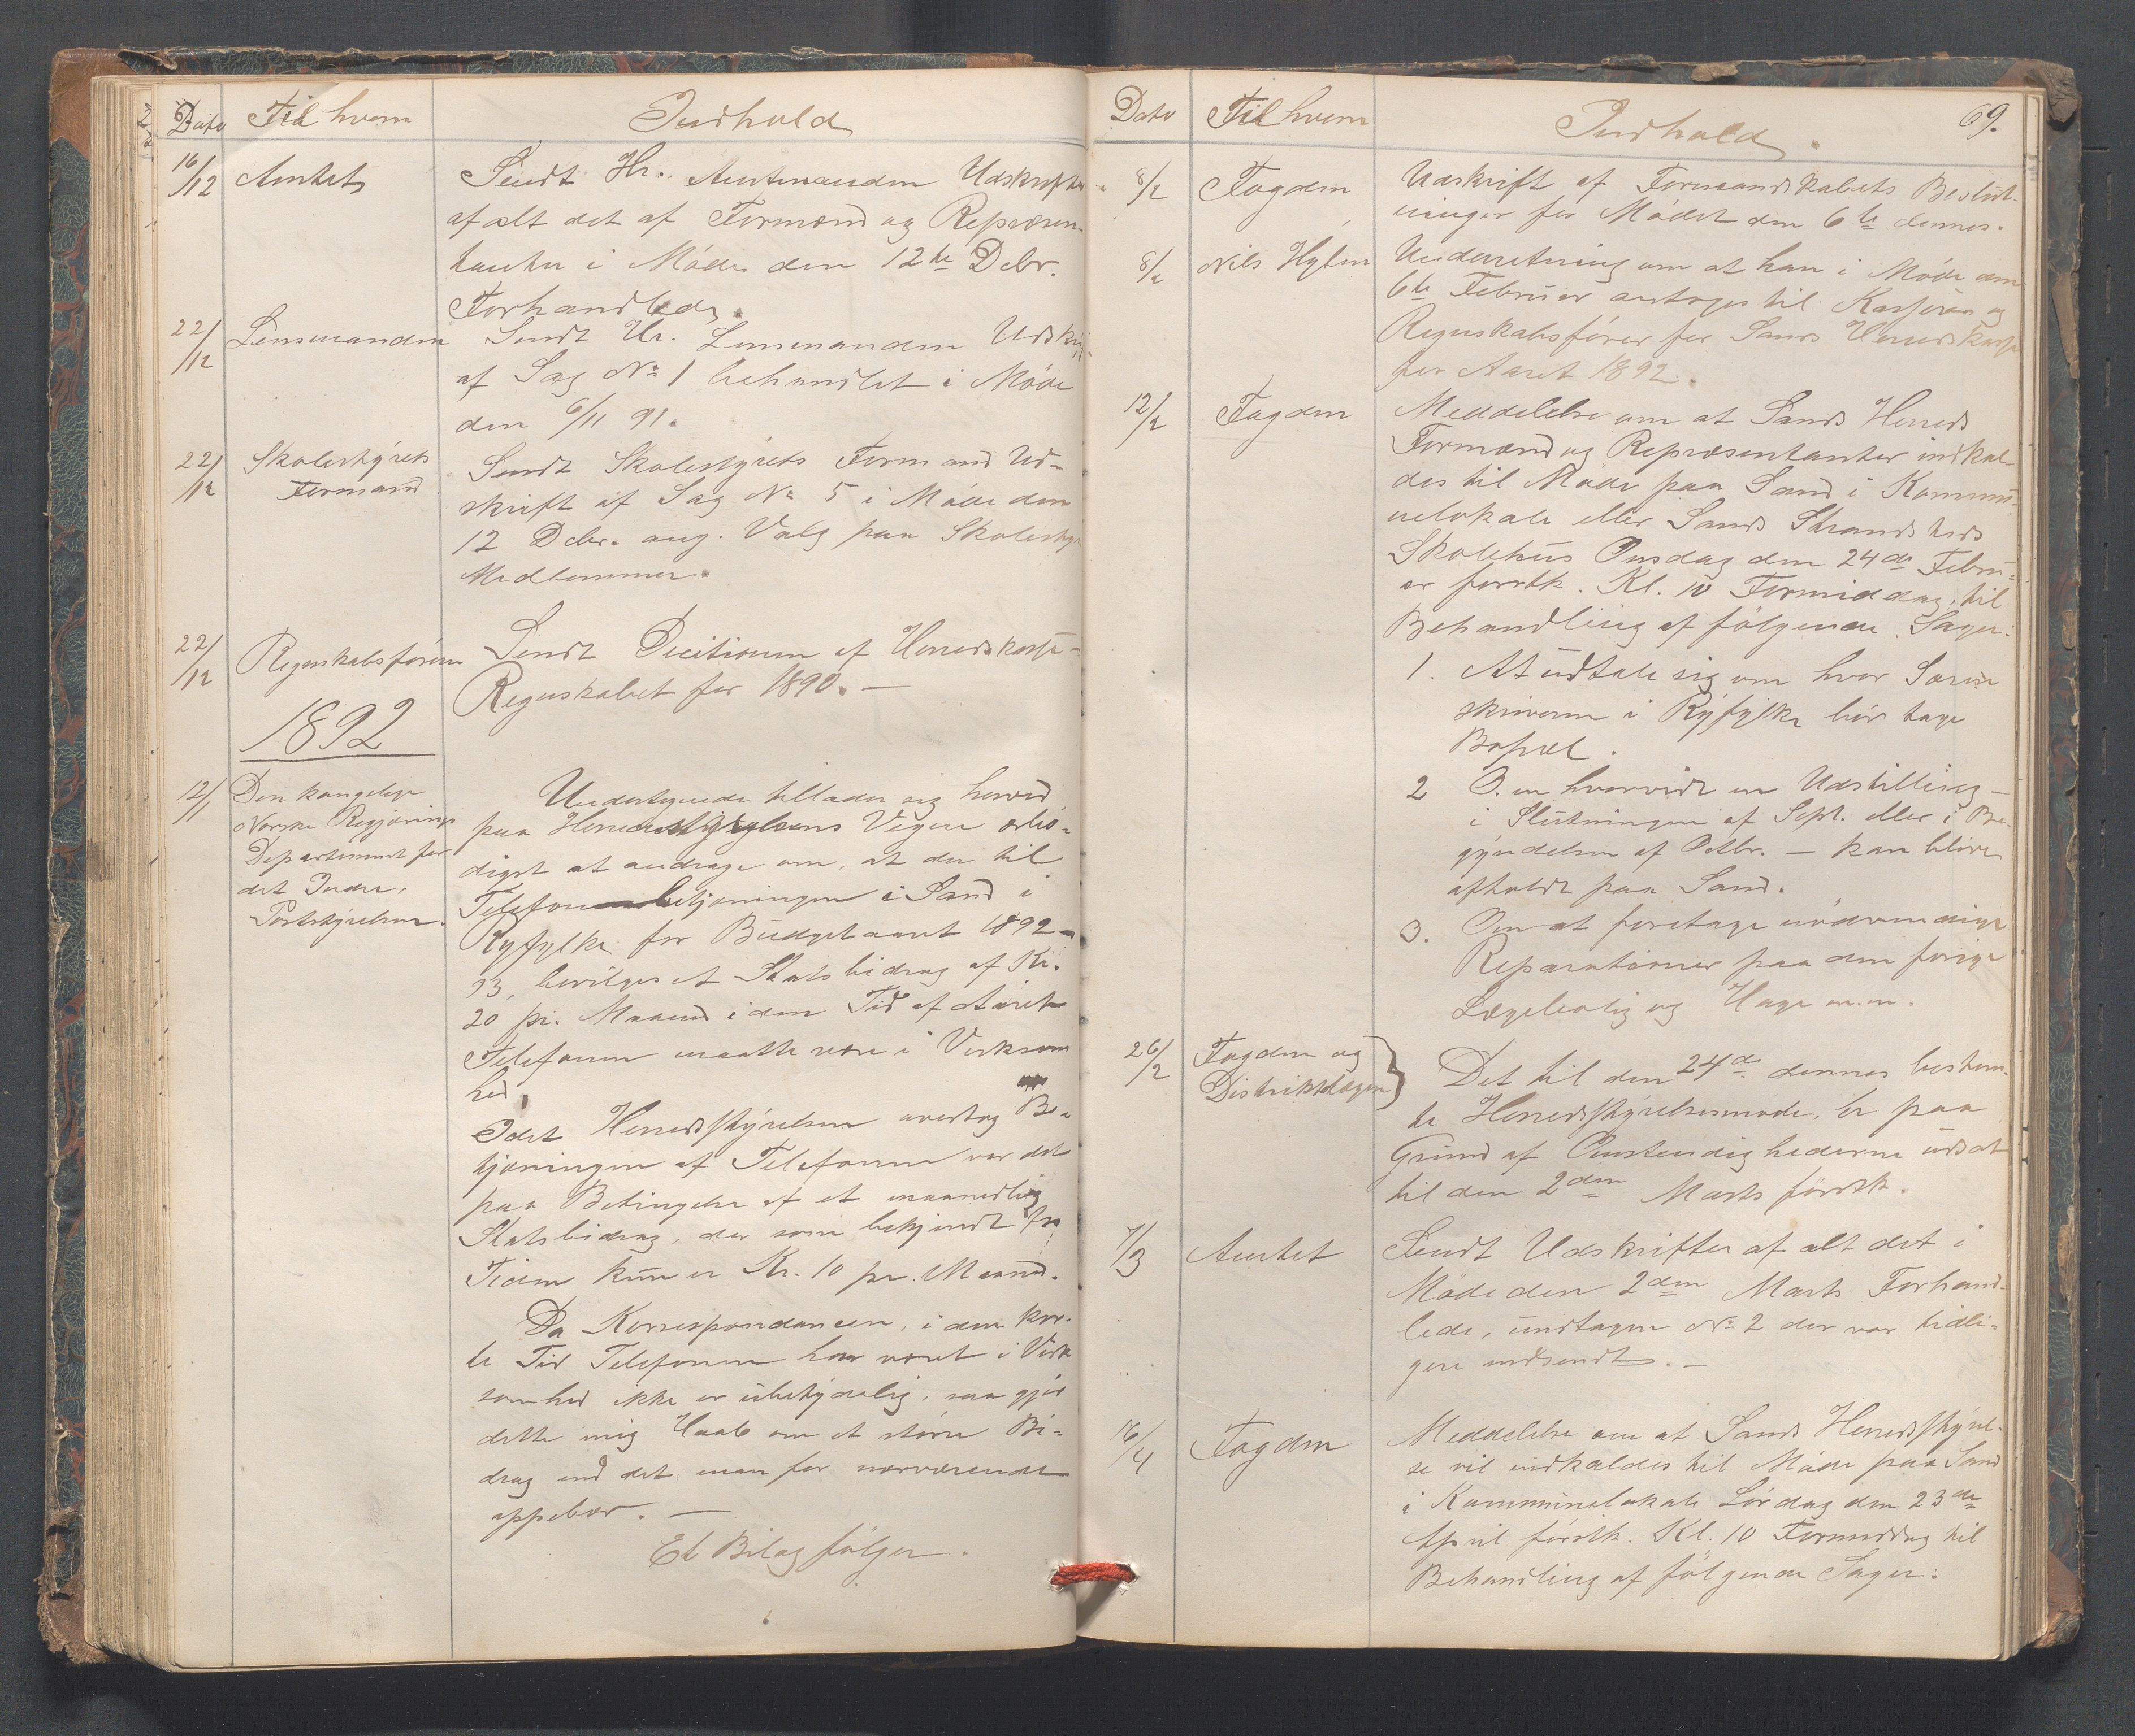 Dato Til hvem Indhold
16/12 Amtet Sendt Hr. Amtmanden Udskrifter
af alt det af Formænd og Repræsen-
tanter i Møde den 12te Debr.
Forhandlede.
22/12 Lensmanden Sendt Hr. Lensmanden Udskrift
af Sag No 1 behandlet i Møde
den 6/11 91.
22/12 Skolestyrets Formand Sendt Skolestyrets Formand Ud-
skrift af Sag No 5 i Møde den
12 Debr. ang. Valg paa Skolestyre
Medlemmer.
22/12 Regnskabsføreren Sendt Decitionen af Herredskasse-
Regnskabet for 1890. —
1892
12/1 Den kongelige
Norske Regjerings
Departement for
det Indre,
Poststyrelsen.
Undertegnede tillader sig herved
paa Herredstyrelsens Vegne ærbø-
digst at andrage om, at der til
Telefonbetjeningen i Sand i
Ryfylke for Budgetaaret 1892-
93, bevilges et Statsbidrag af Kr.
20 pr. Maaned i den Tid af Aaret
Telefonen maatte være i Virksom
hed,
Idet Herredsstyrelsen overtog Be-
tjeningen af Telefonen var det
paa Betingelse af et maanedlig
Statsbidrag, der som bekjendt for
Tiden kun er Kr. 10 pr. Maaned.
Da Korrespondancen, i den kor-
te Tid Telefonen har været i Virk
somhed ikke er ubetydelig, saa gjør
dette mig Haab om et større Bi-
drag end det man for nærværende
oppebær. —
Et Bilag følger.
Dato Til hvem Indhold. 69.
8/2 Fogden Udskrift af Formandskabets Beslut-
ninger for Mødet den 6te dennes.
8/2 Nils Hylen Underretning om at han i Møde den
6te Februar antoges til Kasserer og
Regnskabsfører for Sands Herredskasse
for Aaret 1892.
12/2 Fogden Meddelelse om at Sands Herreds
Formænd og Repræsentanter indkal-
des til Møde paa Sand i Kommu-
nelokale eller Sands Strandsteds
Skolehus Onsdag den 24de Febru-
ar førstk. Kl. 10 Formiddag, til
Behandling af følgende Sager:
1. At udtale sig om hvor Soren
skriveren i Ryfylke bør tage
Bopæl.
2 O. m hvorvidt en Udstilling —
i Slutningen af Sept. eller i Be-
gyndelsen af Octbr. — kan blive
afholdt paa Sand.
3. Om at foretage nødvendige
Reparationer paa den forige
Lægebolig og Hage m.m.
26/2 Fogden og
Distriktslægen } Det til den 24de dennes bestem-
te Herredsstyrelsesmøde, er paa
Grund af Omstendighederne udsat
til den 2den Marts førstk.
7/3 Amtet Sendt Udskrifter af alt det i
Møde den 2den Marts Forhand-
lede, undtagen No 2 der var tidli-
gere indsendt. —
16/4 Fogden Meddelelse om at Sands Herredsstyrel-
se vil indkaldes til Møde paa Sand
i Kommunelokale Lørdag den 23de
April førstk. Kl. 10 Formiddag til
Behandling af følgende Sager: